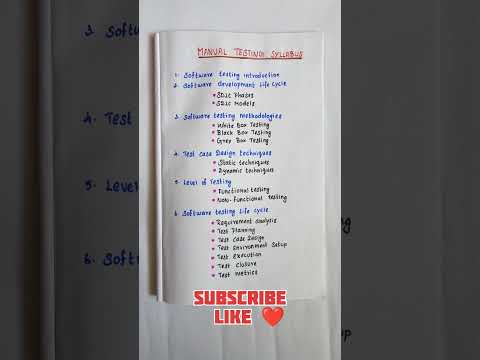 MANUAL TESTING SYLLABUS
1. Software testing introduction
2. Software development Life Cycle
• SDLC Phases
• SDLC Models
3. Software testing methodologies
• White Box Testing
• Black Box Testing
• Grey Box Testing
4. Test case Design techniques
• Static techniques
• Dynamic techniques
5. Level of Testing
• Functional testing
• Non-functional testing
6. Software testing Life cycle
• Requirement analysis
• Test Planning
• Test Case Design
• Test Environment Setup
• Test Execution
• Test Closure
• Test Metrics
SUBSCRIBE
LIKE ❤️
3. Softw
4. Test
5. Level
6. Softw